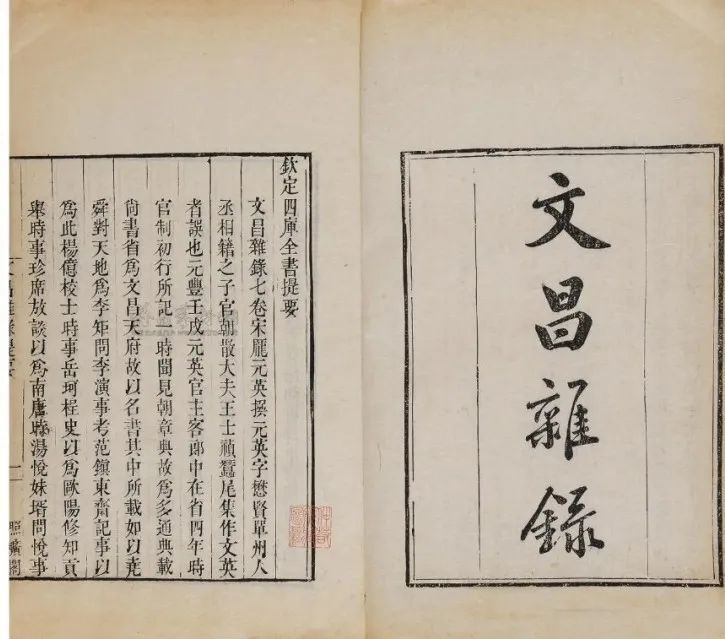 文昌雜錄
欽定四庫全書提要
文昌雜錄七卷宋龐元英撰元英字懋賢單州人
丞相籍之子官朝散大夫王士禎蠶尾集作文英
者誤也元豐壬戌元英官主客郎中在省四年時
官制初行所記一時聞見朝章典故爲多通典載
尚書省爲文昌天府故以名書其中所載如以堯
舜對天地爲李矩問李演事考范鎮東齋記事以
爲此楊億校士時事岳珂桯史以爲歐陽修知貢
舉時事珍席放談以爲南唐時湯悅妹壻問悅事
文昌雜錄提要
一
照曠閣